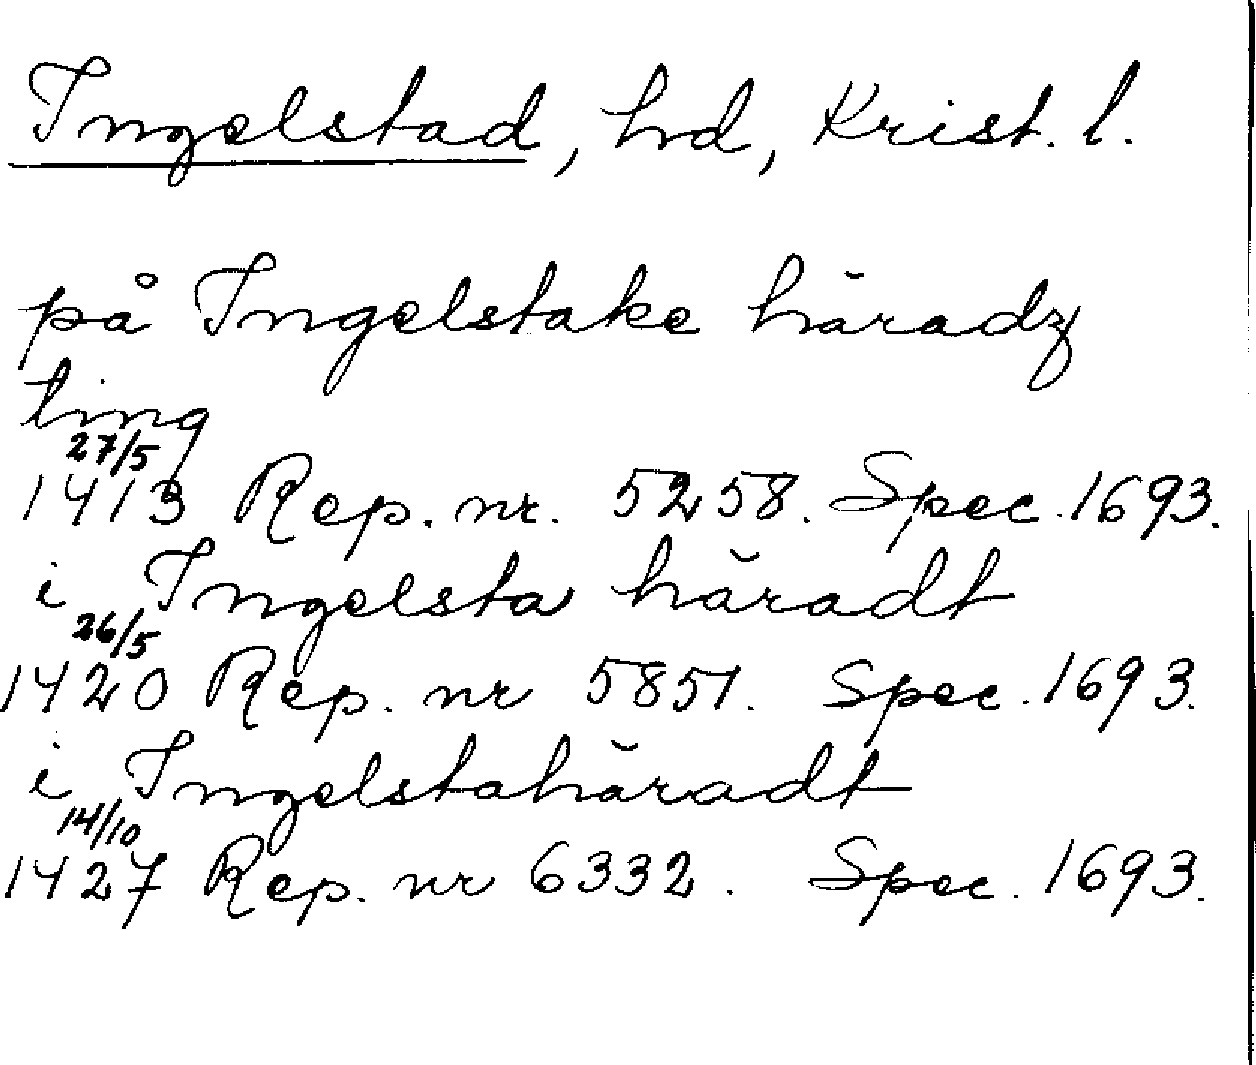 Ingelstad, hd, Krist. l.
på Ingelstake häradz
ting
27/5
1413 Rep. nr. 5258. Spec. 1693.
i Ingelsta häradt
26/5
1420 Rep. nr 5851. Spec. 1693.
i Ingelstahäradt
14/10
1427 Rep. nr 6332. Spec. 1693.